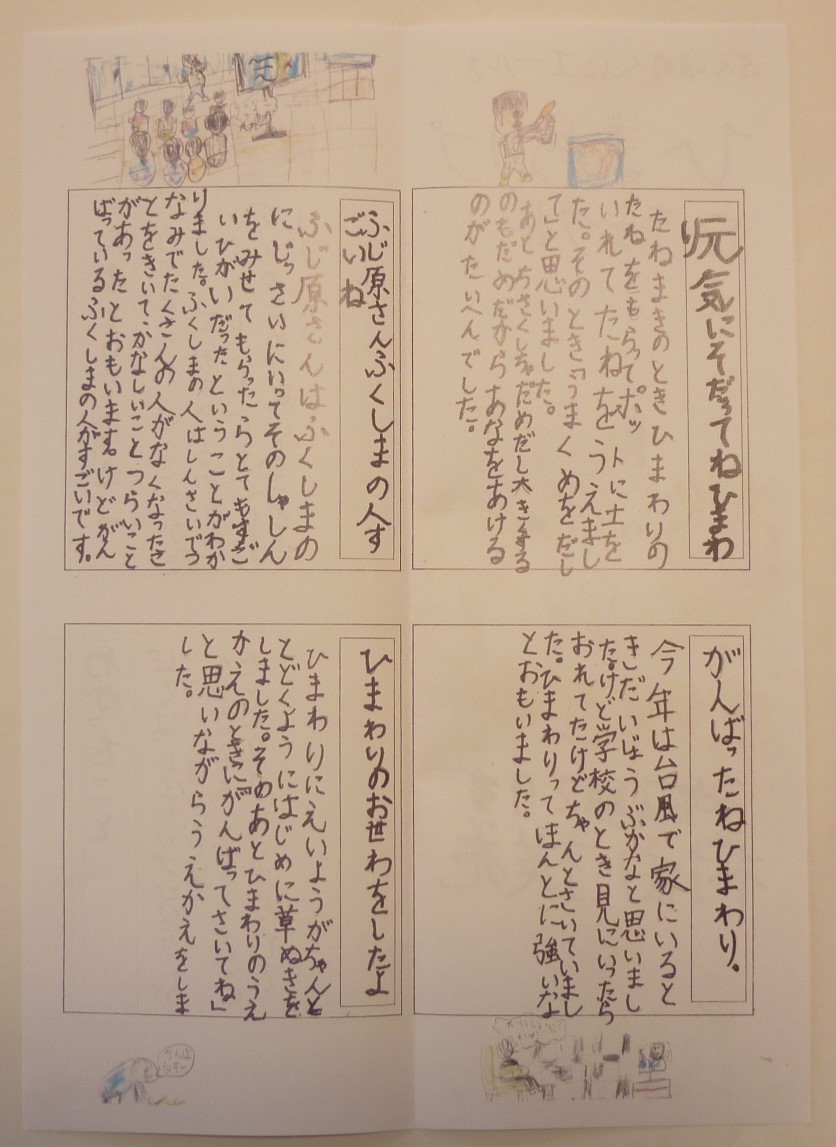 元気にそだってねひまわ
り
たねまきのときひまわりの
たねをもらってポットに土を
いれてたねをうえまし
た。そのとき「うまくめをだし
て」と思いました。
あとちさくしちゃだめだし大きすぎる
のもだめだからあなをあける
のがたいへんでした。
ふじ原さんふくしまの人す
ごいね
ふじ原さんはふくしまの
にじっさいにいってそのしゃしん
をみせてもらったらとてもすご
いひがいだったということがわか
りました。ふくしまの人はしんさいでつ
なみでたくさんの人がなくなったこ
とをきいてかなしいことつらいこと
があったとおもいます。けどがん
ばっているふくしまの人がすごいです。
がんばったねひまわり。
今年は台風で家にいると
きだいじょうぶかなと思いまし
た。けど学校のとき見にいったら
おれてたけどちゃんとさいていまし
た。ひまわりってほんとに強いな
とおもいました。
ひまわりのお世わをしたよ
ひまわりにえいようがちゃんと
とどくようにはじめに草ぬきを
しました。そのあとひまわりのうえ
かえのときに「がんばってさいてね」
と思いながらうえかえをしま
した。